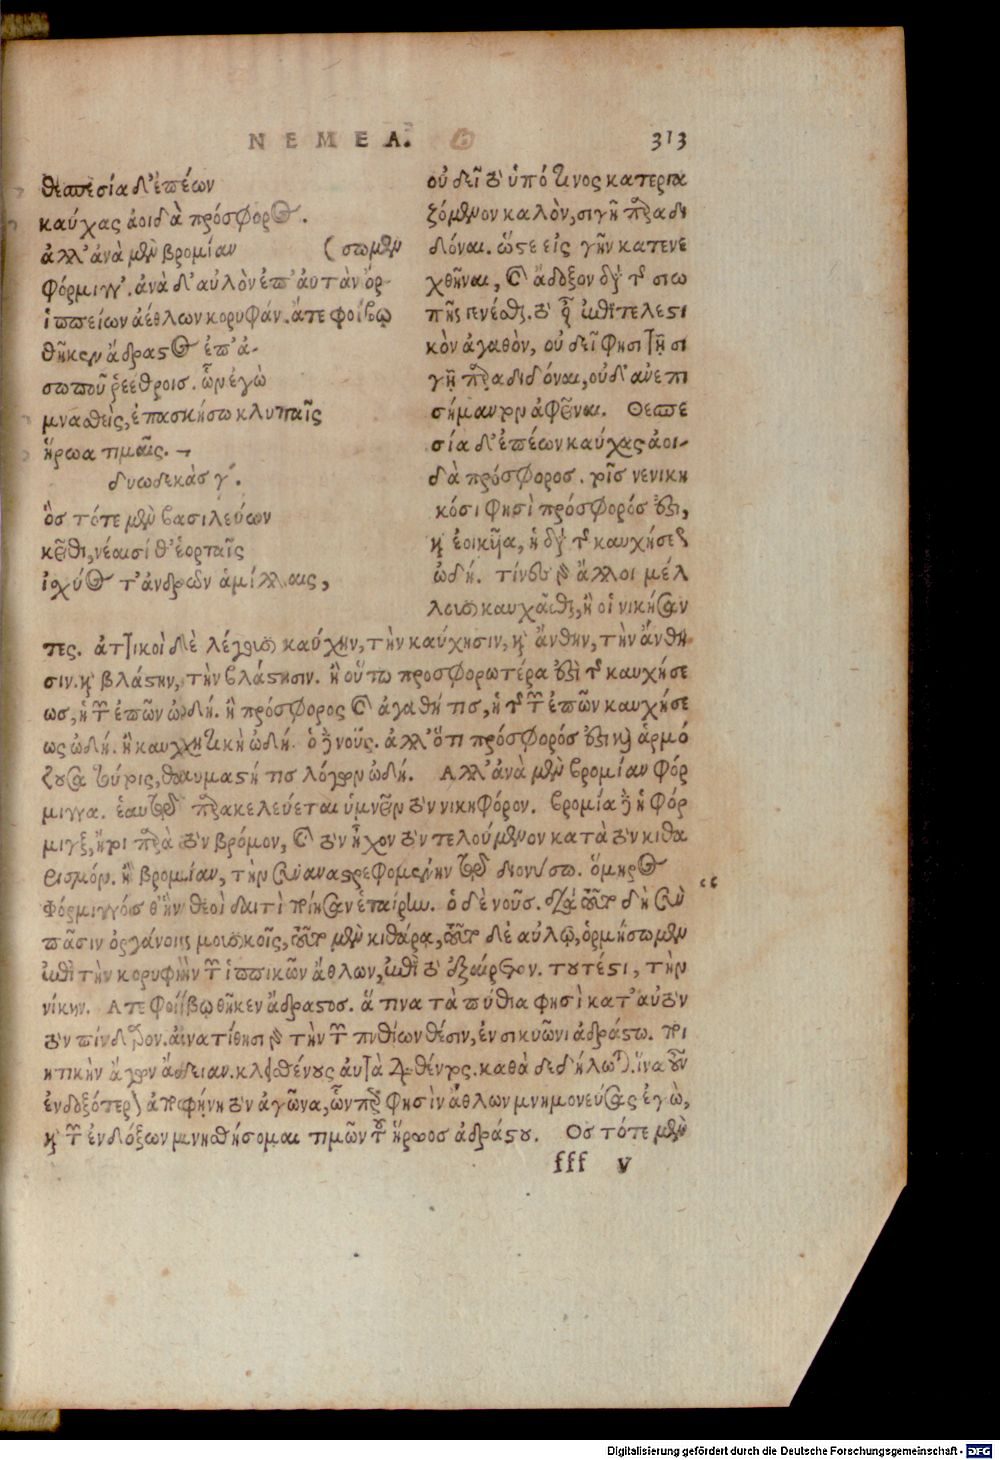 ΝΕΜΕΑ. 313
θεσπεσία δ' ἐπέων
καύχας ἀοιδὰ πρόσφορος.
ἀλλ' ἀνὰ μὲν βρομίαν (στωμεν
φόρμιγγ'. ἀνὰ δ' αὐλὸν ἐπ' ἀυτὰν ὁρ-
ἱππείων ἀέθλων κορυφάν. ἅτε φοίβῳ
θῆκεν ἄδραστος ἐπ' ἀ-
σωποῦ ῥεέθροισ. ὧν ἐγὼ
μνασθεὶς, ἐπασκήσω κλυταῖς
ἥρωα τιμαῖς. ¬
δυωδεκὰσ γ'.
ὃσ τότε μὲν βασιλεύων
κεῖθι, νέαισί θ' ἑορταῖς
ἰσχύος τ' ἀνδρῶν ἁμίλλαις,
οὐ δεῖ τὸ ὑπό τινος κατεργα
ζόμενον καλὸν, σιγῇ παραδι
δόναι. ὥστε εἰς γῆν κατενε
χθῆναι, καὶ ἄδοξον διὰ τῆς σιω
πῆς γενέσθαι. τὸ γὰρ ἐπιτελεστι
κὸν ἀγαθὸν, οὐ δεῖ φησι τῇ σι
γῇ παραδιδόναι, οὐδ' ἀνεπι
σήμαντον ἀφεῖναι. Θεσπε
σία δ' ἐπέων καύχας ἀοι-
δὰ πρόσφοροσ. τοῖς νενικη
κόσι φησὶ πρόσφορός ἐστι,
καὶ ἐοικῆα, ἡ διὰ τῆς καυχήσεως
ᾠδή. τίνες γὰρ ἄλλοι μέλ
λουσι καυχᾶσθαι, ἢ οἱ νικήσαν
τες. ἀττικοὶ δὲ λέγουσι καύχην, τὴν καύχησιν, καὶ ἄνθην, τὴν ἄνθη
σιν. καὶ βλάστην, τὴν βλάστησιν. ἢ οὕτω προσφορωτέρα ἐστὶ τῆς καυχήσε
ωσ, ἡ τῶν ἐπῶν ᾠδή. ἢ πρόσφορος καὶ ἀγαθή τις, ἡ τῆς τῶν ἐπῶν καυχήσε
ως ᾠδή. ἢ καυχητικὴ ᾠδή. ὁ δὲ νοῦς. ἀλλ' ὅτι πρόσφορός ἐστι καὶ ἁρμό
ζουσα τύρις, θαυμαστή τισ λόγων ᾠδή. Αλλ' ἀνὰ μὲν βρομίαν φόρ
μιγγα. ἑαυτῷ παρακελεύεται ὑμνεῖν τὸν νικηφόρον. βρομία δὲ ἡ φόρ
μιγξ, ἤτοι παρὰ τὸν βρόμον, καὶ τὸν ἦχον τὸν τελούμενον κατὰ τὸν κιθα
ρισμόν. ἢ βρομίαν, τὴν συναναστρεφομένην τῷ διονύσω. ὅμηρος
φόρμιγγός θ' ἣν θεοὶ δαιτὶ ποίησαν ἑταίρην. ὁ δὲ νοῦσ. διὸ δὴ σὺν
πᾶσιν ὀργάνοις μουσικοῖς, τοῦτο μὲν κιθάρα, τοῦτο δὲ αὐλῷ, ὁρμήσωμεν
ἐπὶ τὴν κορυφὴν τῶν ἱππικῶν ἄθλων, ἐπὶ τὸ ἐξαίρετον. τουτέστι, τὴν
νίκην. Ατε φοίβῳ θῆκεν ἄδραστοσ. ἅ τινα τὰ πύθια φησὶ κατ' αὐτὸν
τὸν πίνδαρον. ἀνατίθησι γὰρ τὴν τῶν πυθίων θέσιν, ἐν σικυῶνι ἀδράστω. ποι
ητικὴν ἄγων ἄδειαν. κλεισθένους αὐτὰ διαθέντος. καθὰ δεδήλωται. ἵνα οὖν
ἐνδοξότερον ἀποφήνη τὸν ἀγῶνα, ὧν περ φησὶν ἄθλων μνημονεύσας ἐγὼ,
καὶ τῶν ἐνδόξων μνησθήσομαι τιμῶν τοῦ ἥρωος ἀδράστου. Ος τότε μὲν
fff v
Digitalisierung gefördert durch die Deutsche Forschungsgemeinschaft - DFG